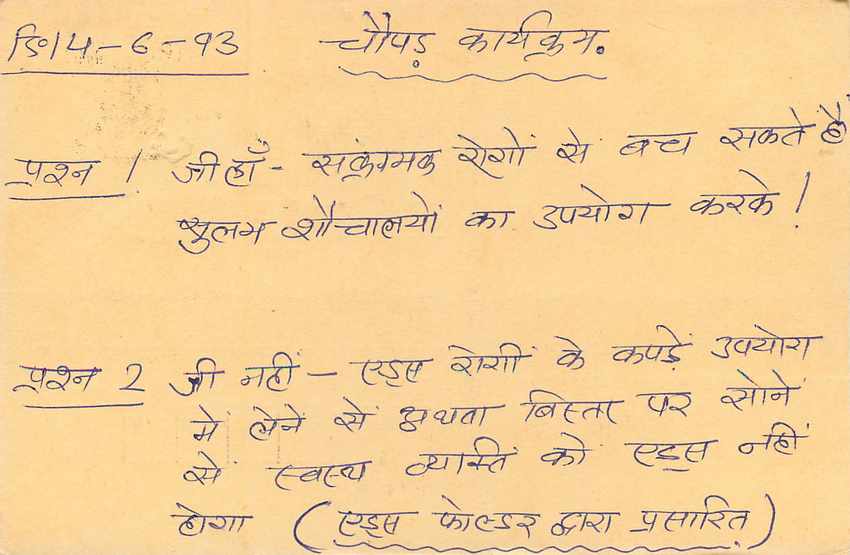 दि० 14-6-93 चौपड़ कार्यक्रम.
प्रश्न 1 जी हाँ - संक्रामक रोगों से बच सकते है
सुलभ शौचालयों का उपयोग करके !
प्रश्न 2 जी नहीं - एड्स रोगी के कपड़ें उपयोग
में लेने से अथवा बिस्तर पर सोने
से स्वस्थ व्यक्ति को एड्स नहीं
होगा ( एड्स फोल्डर द्वारा प्रसारित )